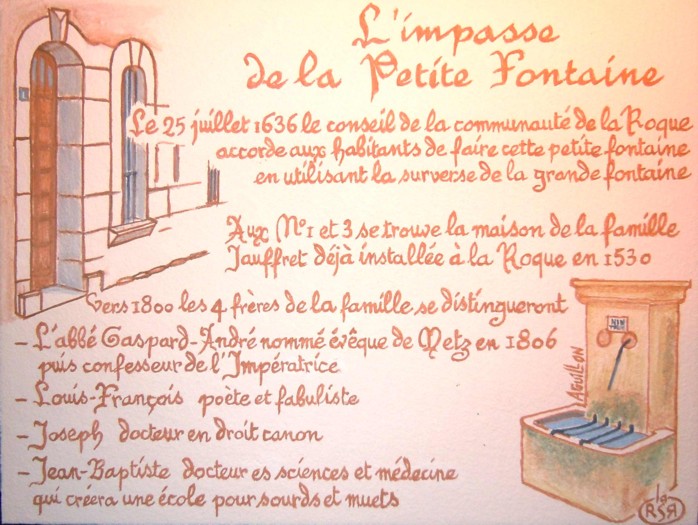 L'impasse
de la Petite Fontaine
Le 25 juillet 1636 le conseil de la communauté de la Roque
accorde aux habitants de faire cette petite fontaine
en utilisant la surverse de la grande fontaine
Aux N°1 et 3 se trouve la maison de la famille
Jauffret déjà installée à la Roque en 1530
Vers 1800 les 4 frères de la famille se distingueront
- L'abbé Gaspard-André nommé évêque de Metz en 1806
puis confesseur de l'Impératrice
- Louis-François poète et fabuliste
- Joseph docteur en droit canon
- Jean-Baptiste docteur es sciences et médecine
qui créera une école pour sourds et muets
AGUILLON
la
RSR